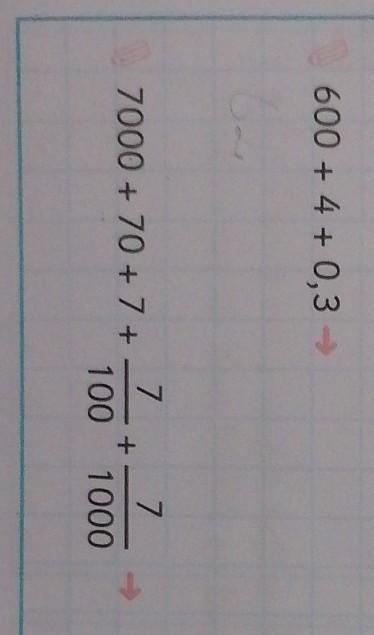 600 + 4 + 0,3 →
7000 + 70 + 7 + 7/100 + 7/1000 →